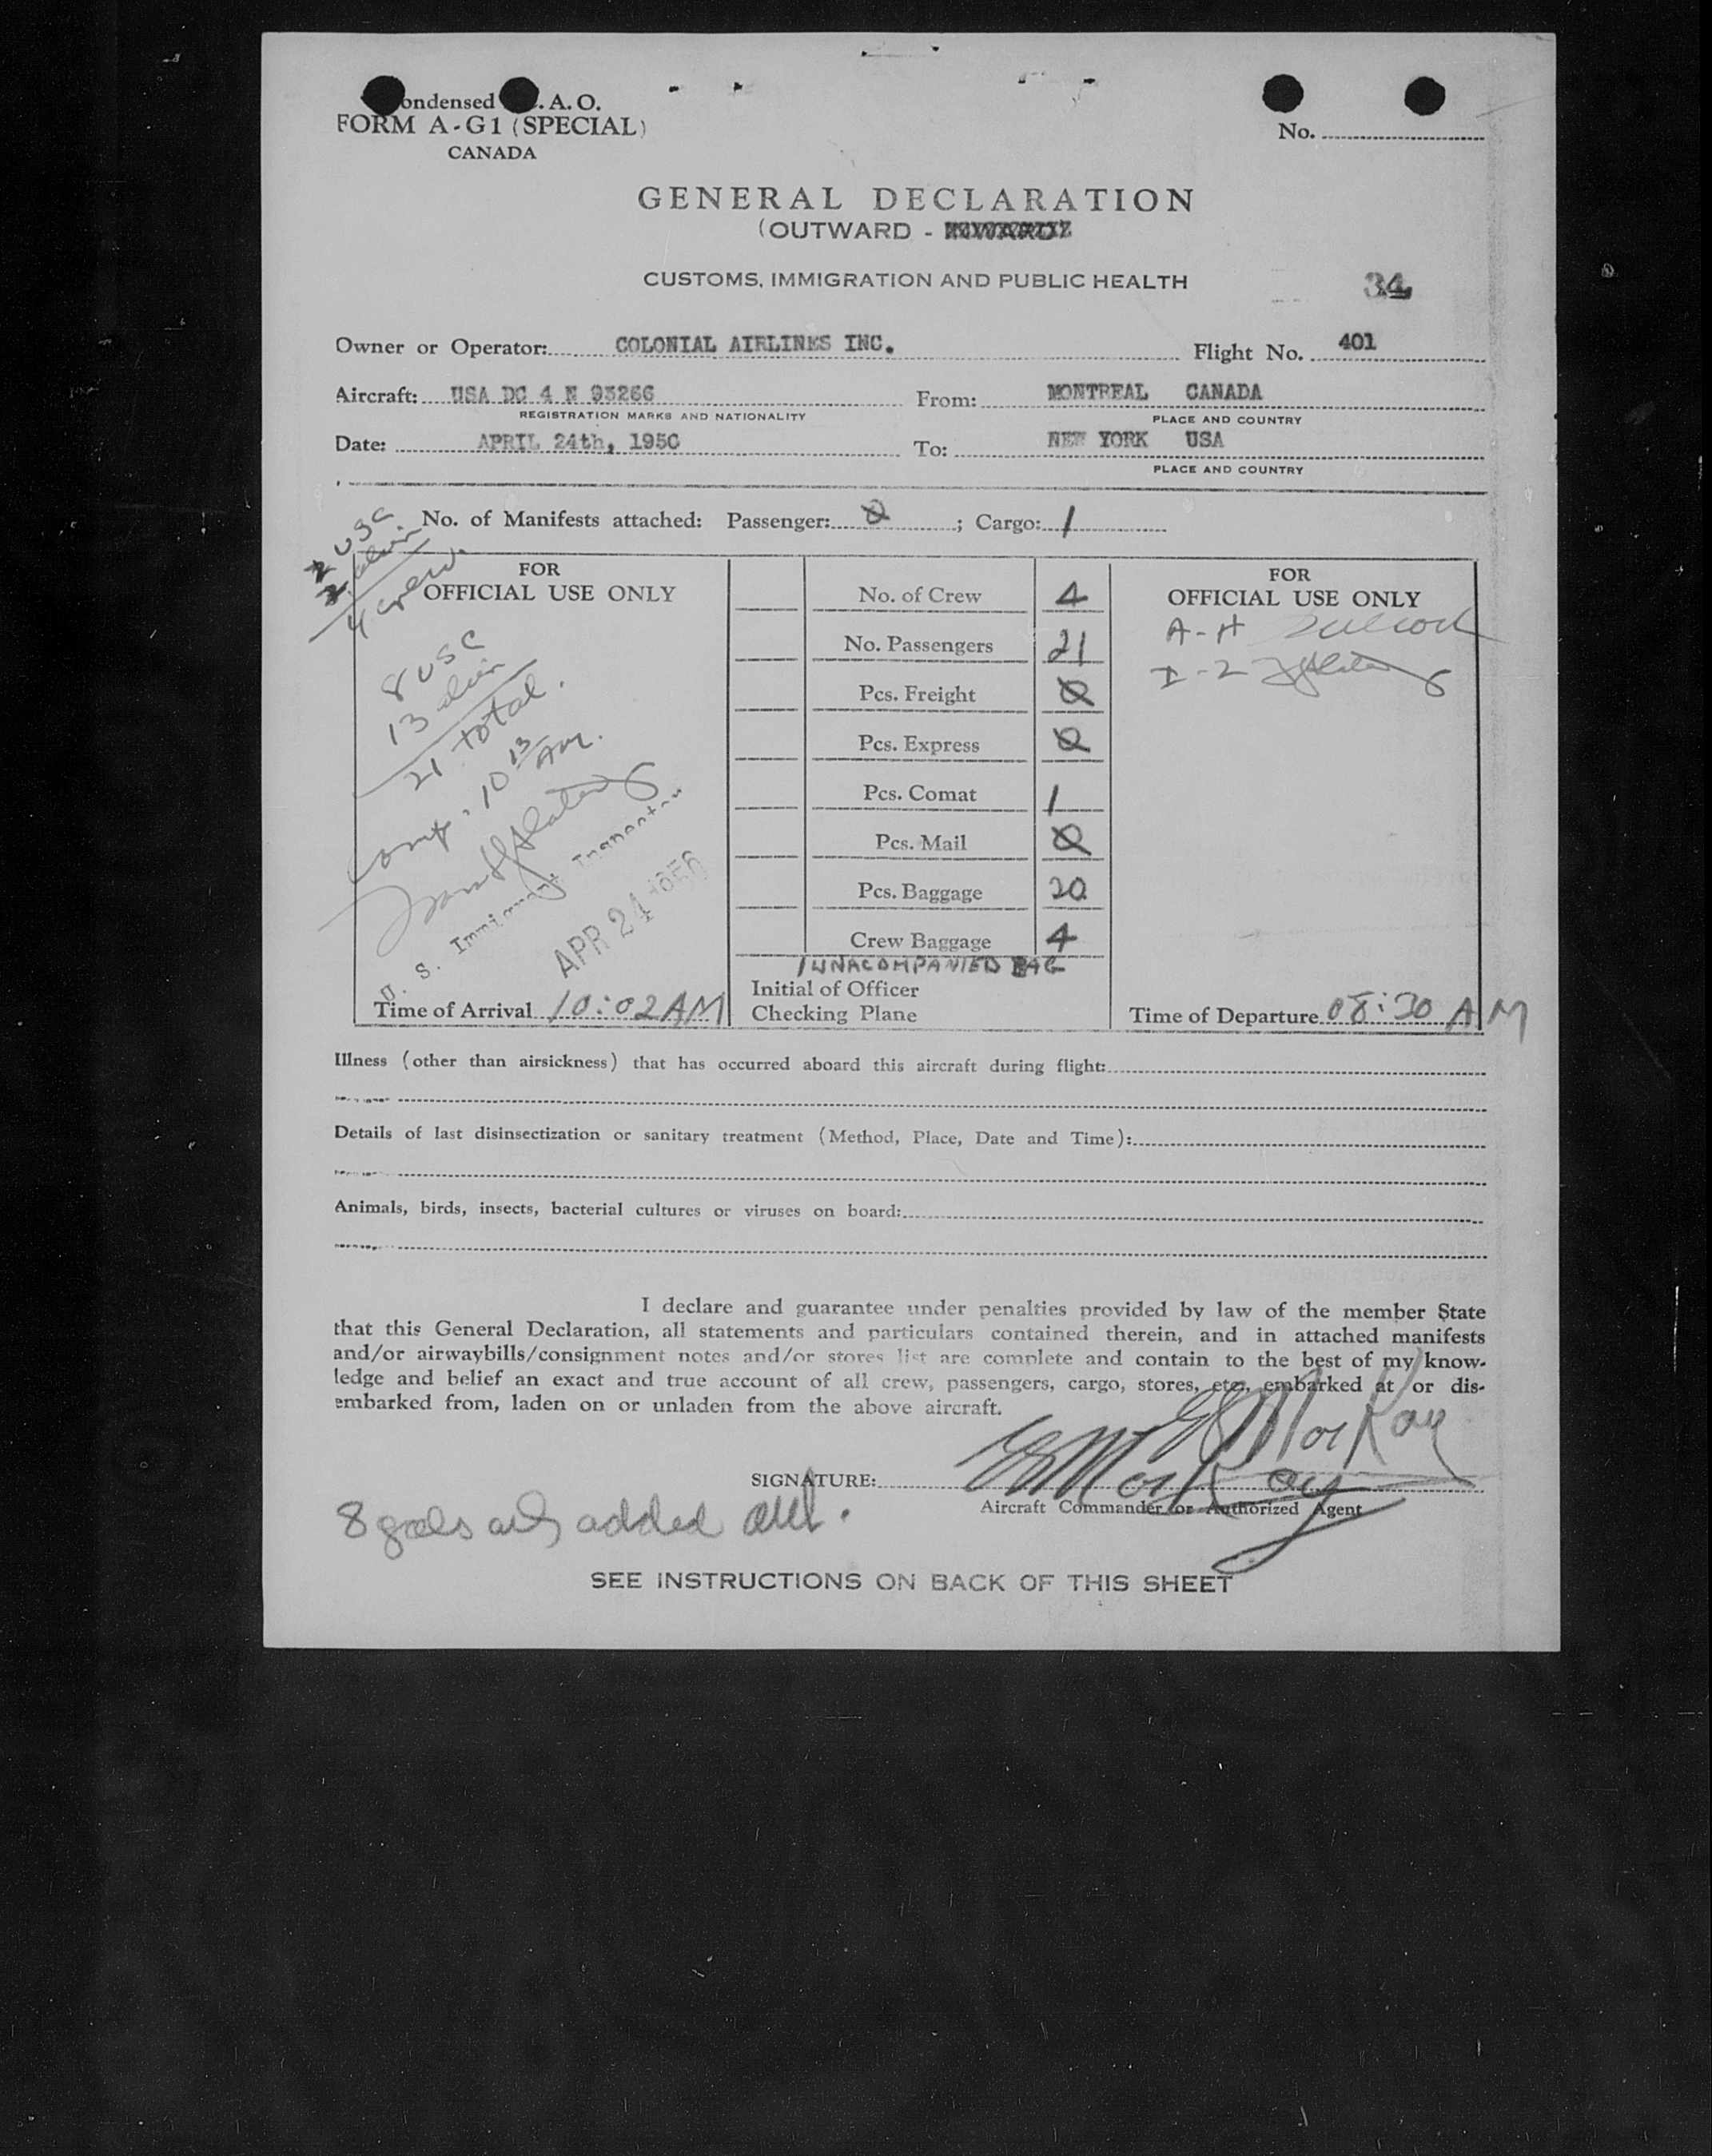 ondensed . A. O.
FORM A-G1 (SPECIAL)
CANADA
No.
GENERAL DECLARATION
(OUTWARD - INWARD)
CUSTOMS, IMMIGRATION AND PUBLIC HEALTH
34
Owner or Operator: COLONIAL AIRLINES INC. Flight No. 401
Aircraft: USA DC 4 N 93266 From: MONTREAL CANADA
REGISTRATION MARKS AND NATIONALITY PLACE AND COUNTRY
Date: APRIL 24th, 1950 To: NEW YORK USA
PLACE AND COUNTRY
No. of Manifests attached: Passenger: 0 ; Cargo: 1
2 USC
2 alien
4 crew.
FOR
OFFICIAL USE ONLY
8 USC
13 alien
21 total.
Comp. 10 13 AM.
U. S. Immigrant Inspector
APR 24 1950
Time of Arrival 10:02 AM
No. of Crew 4
No. Passengers 21
Pcs. Freight 0
Pcs. Express 0
Pcs. Comat 1
Pcs. Mail 0
Pcs. Baggage 20
Crew Baggage 4
1 UNACOMPANIED BAG
Initial of Officer
Checking Plane
FOR
OFFICIAL USE ONLY
A-H
I-2
Time of Departure 08:30 AM
Illness (other than airsickness) that has occurred aboard this aircraft during flight:
Details of last disinsectization or sanitary treatment (Method, Place, Date and Time):
Animals, birds, insects, bacterial cultures or viruses on board:
I declare and guarantee under penalties provided by law of the member State
that this General Declaration, all statements and particulars contained therein, and in attached manifests
and/or airwaybills/consignment notes and/or stores list are complete and contain to the best of my know-
ledge and belief an exact and true account of all crew, passengers, cargo, stores, etc., embarked at or dis-
embarked from, laden on or unladen from the above aircraft.
E MacKay
SIGNATURE: E MacKay
Aircraft Commander or Authorized Agent
8 gals added
SEE INSTRUCTIONS ON BACK OF THIS SHEET